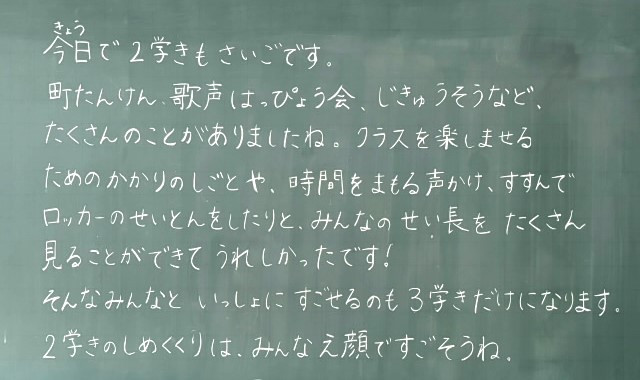 きょう
今日で2学きもさいごです。
町たんけん、歌声はっぴょう会、じきゅうそうなど、
たくさんのことがありましたね。クラスを楽しませる
ためのかかりのしごとや、時間をまもる声かけ、すすんで
ロッカーのせいとんをしたりと、みんなのせい長をたくさん
見ることができてうれしかったです!
そんなみんなといっしょにすごせるのも3学きだけになります。
2学きのしめくくりは、みんなえ顔ですごそうね。